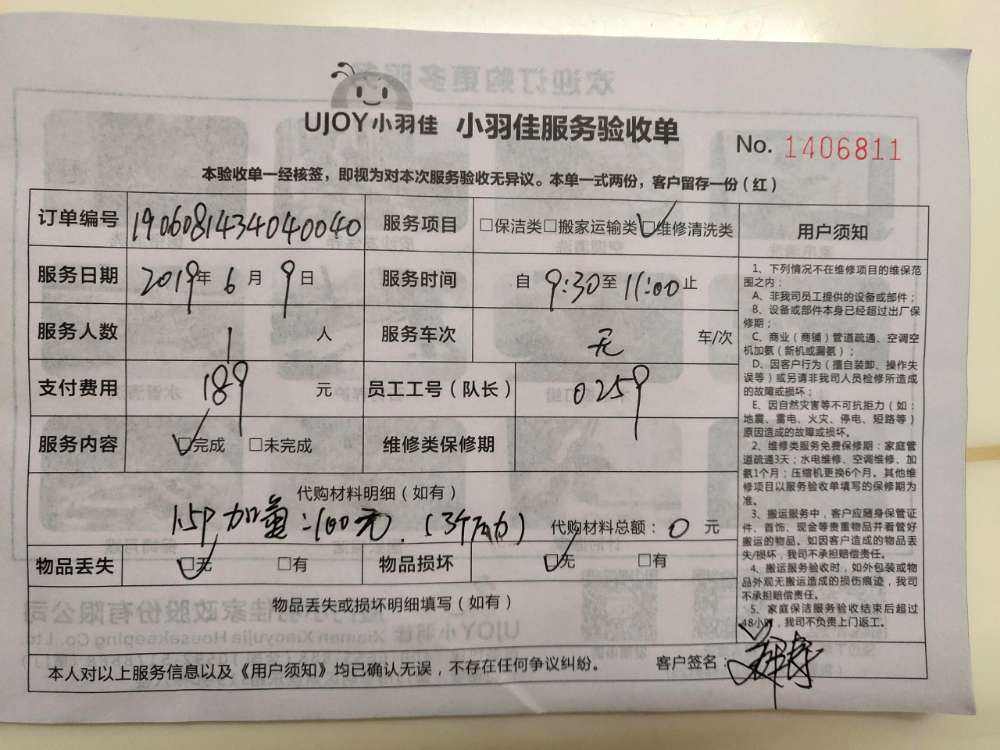 UJOY小羽佳 小羽佳服务验收单
No. 1406811
本验收单一经核签，即视为对本次服务验收无异议。本单一式两份，客户留存一份（红）
订单编号 190608143404040040 服务项目 □保洁类□搬家运输类□维修清洗类
服务日期 2019年 6月 9日 服务时间 自 9:30至 11:00止
服务人数 1 人 服务车次 无 车/次
支付费用 189 元 员工工号（队长） 0259
服务内容 □完成 □未完成 维修类保修期
代购材料明细（如有）
1.5P 加 =100元. (3个 ) 代购材料总额： 0 元
物品丢失 □无 □有 物品损坏 □无 □有
物品丢失或损坏明细填写（如有）
本人对以上服务信息以及《用户须知》均已确认无误，不存在任何争议纠纷。 客户签名：
用户须知
1、下列情况不在维修项目的维保范
围之内：
A、非我司员工提供的设备或部件；
B、设备或部件本身已经超过出厂保
修期；
C、商业（商铺）管道疏通、空调空
机加氨（新机或漏氨）；
D、因客户行为（擅自装卸、操作失
误等）或另请非我司人员检修所造成
的故障或损坏；
E、因自然灾害等不可抗拒力（如：
地震、雷电、火灾、停电、短路等）
原因造成的故障或损坏。
2、维修类服务免费保修期：家庭管
道疏通3天；水电维修、空调维修、加
氨1个月；压缩机更换6个月。其他维
修项目以服务验收单填写的保修期为
准。
3、搬运服务中，客户应随身保管证
件、首饰、现金等贵重物品并看管好
搬运的物品。如因客户造成的物品丢
失/损坏，我司不承担赔偿责任。
4、搬运服务验收时，如外包装或物
品外观无搬运造成的损伤痕迹，我司
不承担赔偿责任。
5、家庭保洁服务验收结束后超过
48小时，我司不负责上门返工。